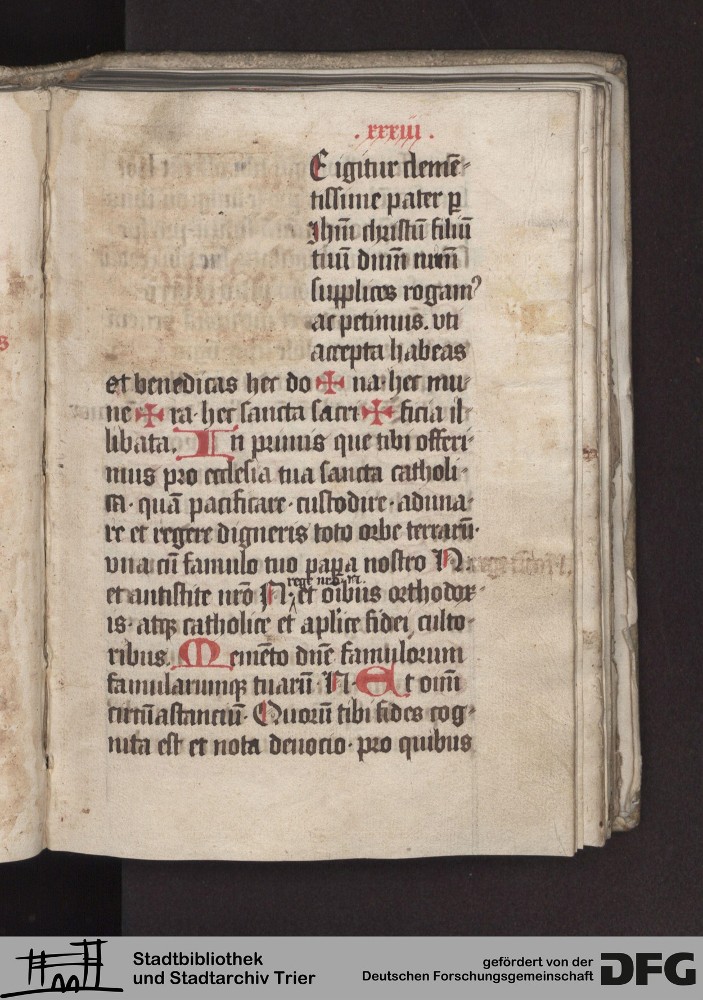 . xxxiii .
E igitur clemē-
tissime pater ꝑ
ihm̄ christū filiū
tuū dnm̄ nrm̄
supplices rogam⁹
ac petimus. vti
accepta habeas
et benedicas hec do ✠ na· hec mu
ne ✠ ra· hec sancta sacri ✠ ficia il
libata. In primis que tibi offeri·
mus pro ecclesia tua sancta catholi·
ca· quā pacificare· custodire· aduna·
re et regere digneris toto orbe terrarū·
vna cū famulo tuo papa nostro N.
rege nrō N.
et antistite nrō N. et oībus orthodox·
is· atqꝫ catholice et aplice fidei culto·
ribus. Memēto dn̄e famulorum
famularumqꝫ tuarū· N· Et oīm
circūastanciū· Quorū tibi fides cog·
nita est et nota deuocio· pro quibus
Stadtbibliothek
und Stadtarchiv Trier
gefördert von der
Deutschen Forschungsgemeinschaft
DFG